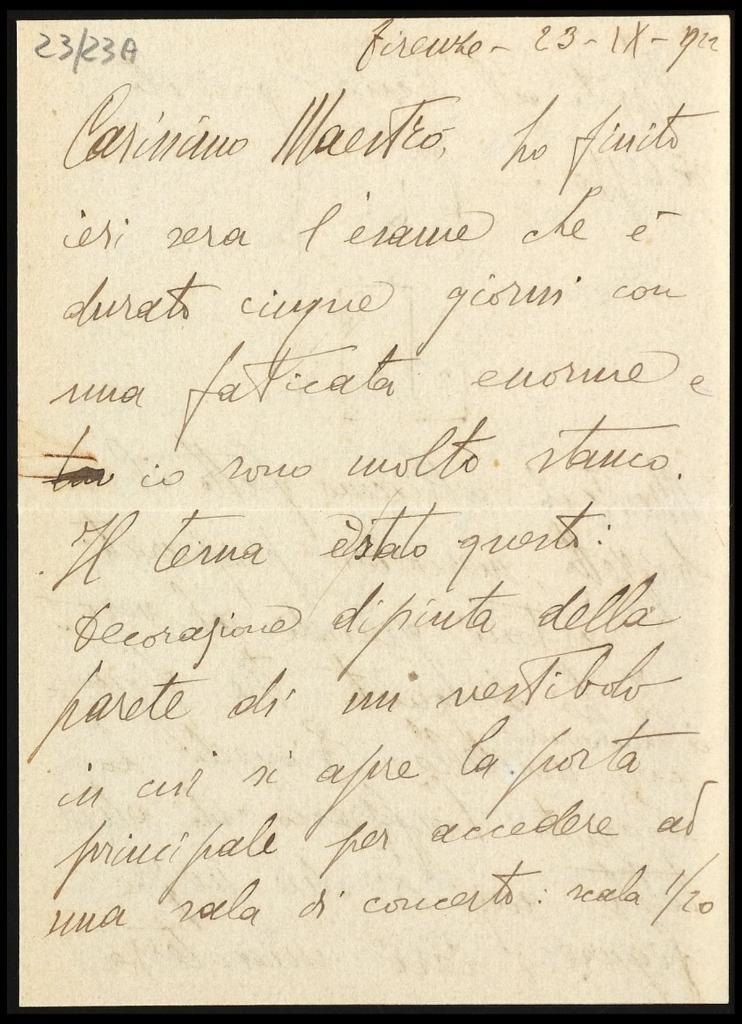 23/23A
Firenze - 23 - IX - 922
Carissimo Maestro, ho finito
ieri sera l'esame che è
durato cinque giorni con
una faticata enorme e
io sono molto stanco.
Il tema è stato questo:
Decorazione dipinta della
parete di un vestibolo
in cui si apre la porta
principale per accedere ad
una sala di concerto: scala 1/20